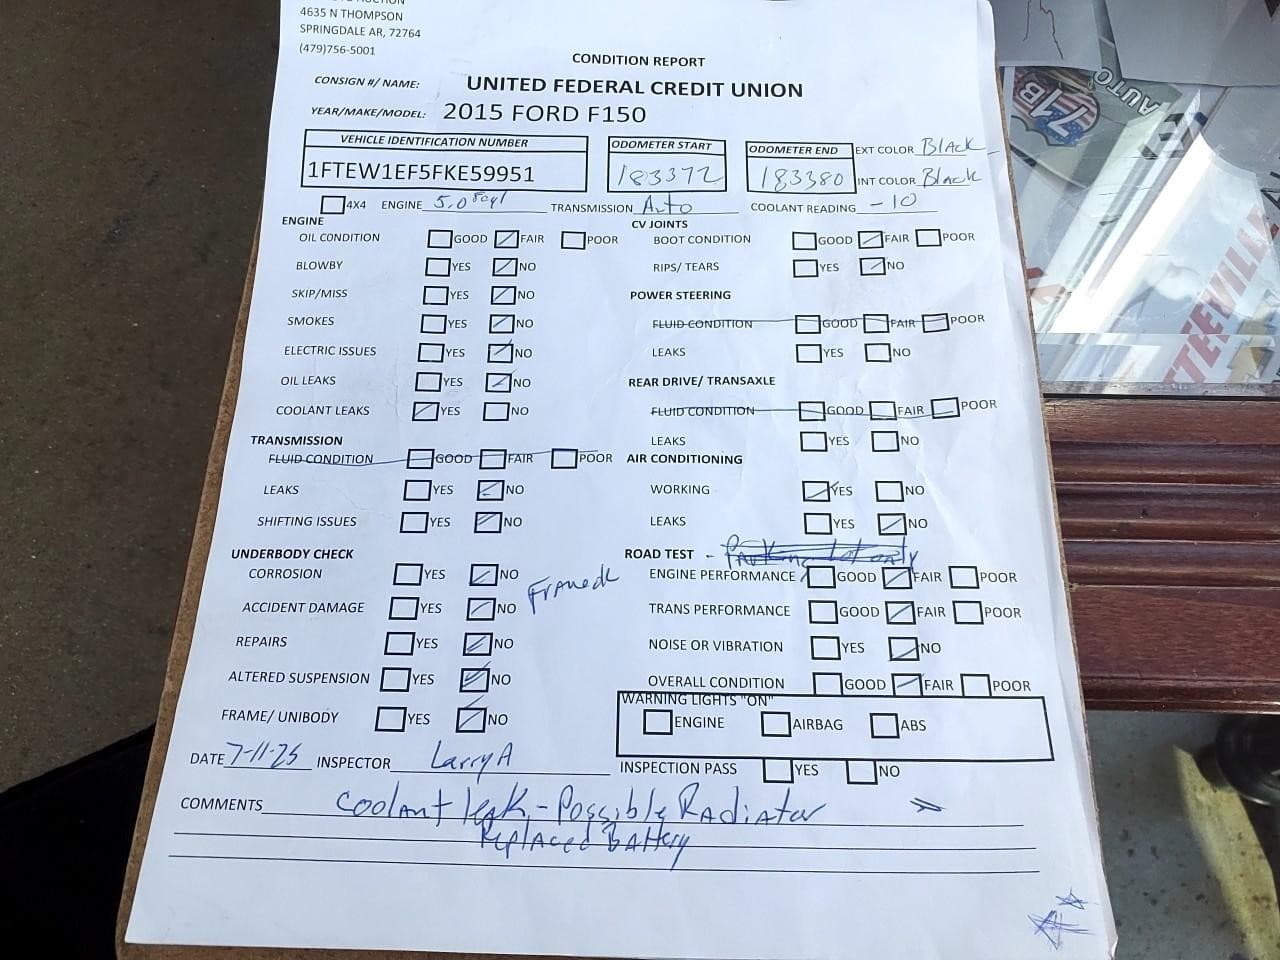 4635 N THOMPSON
SPRINGDALE AR, 72764
(479)756-5001
CONDITION REPORT
CONSIGN #/ NAME: UNITED FEDERAL CREDIT UNION
YEAR/MAKE/MODEL: 2015 FORD F150
VEHICLE IDENTIFICATION NUMBER ODOMETER START ODOMETER END EXT COLOR Black
1FTEW1EF5FKE59951 183372 183380 INT COLOR Black
4X4 ENGINE 5.0 8cyl TRANSMISSION Auto COOLANT READING -10
ENGINE CV JOINTS
OIL CONDITION GOOD FAIR POOR BOOT CONDITION GOOD FAIR POOR
BLOWBY YES NO RIPS/ TEARS YES NO
SKIP/MISS YES NO POWER STEERING
SMOKES YES NO FLUID CONDITION GOOD FAIR POOR
ELECTRIC ISSUES YES NO LEAKS YES NO
OIL LEAKS YES NO REAR DRIVE/ TRANSAXLE
COOLANT LEAKS YES NO FLUID CONDITION GOOD FAIR POOR
TRANSMISSION LEAKS YES NO
FLUID CONDITION GOOD FAIR POOR AIR CONDITIONING
LEAKS YES NO WORKING YES NO
SHIFTING ISSUES YES NO LEAKS YES NO
UNDERBODY CHECK ROAD TEST - Parking lot only
CORROSION YES NO ENGINE PERFORMANCE GOOD FAIR POOR
ACCIDENT DAMAGE YES NO Frame ok TRANS PERFORMANCE GOOD FAIR POOR
REPAIRS YES NO NOISE OR VIBRATION YES NO
ALTERED SUSPENSION YES NO OVERALL CONDITION GOOD FAIR POOR
WARNING LIGHTS "ON"
FRAME/ UNIBODY YES NO ENGINE AIRBAG ABS
DATE 7-11-25 INSPECTOR Larry A INSPECTION PASS YES NO
COMMENTS Coolant leak - Possible Radiator
Replaced Battery
71B
AUTO